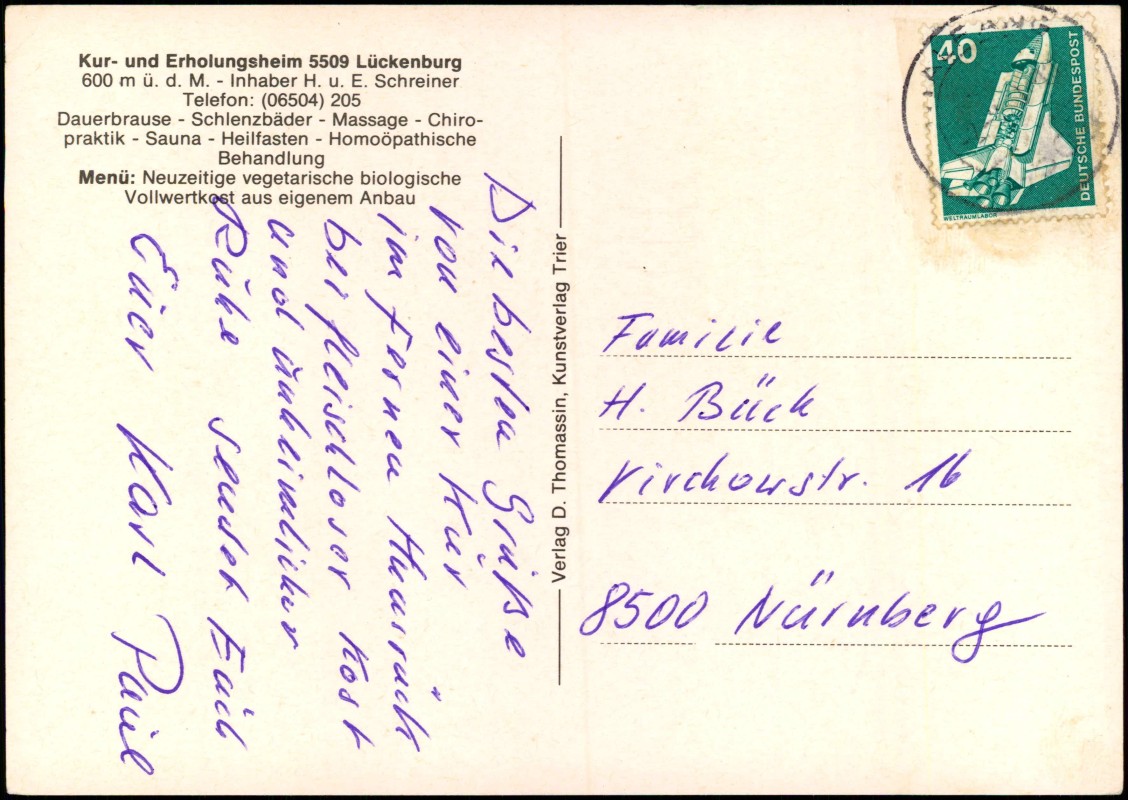 Kur- und Erholungsheim 5509 Lückenburg
600 m ü. d. M. - Inhaber H. u. E. Schreiner
Telefon: (06504) 205
Dauerbrause - Schlenzbäder - Massage - Chiro-
praktik - Sauna - Heilfasten - Homoöpathische
Behandlung
Menü: Neuzeitige vegetarische biologische
Vollwertkost aus eigenem Anbau
Die besten Grüße
von einer Kur
im fernen Hunsrück
bei fleischloser Kost
und unheimlicher
Ruhe sendet Euch
Euer Karl Paul
Verlag D. Thomassin, Kunstverlag Trier
40
DEUTSCHE BUNDESPOST
WELTRAUMLABOR
Familie
H. Bück
Virchowstr. 16
8500 Nürnberg